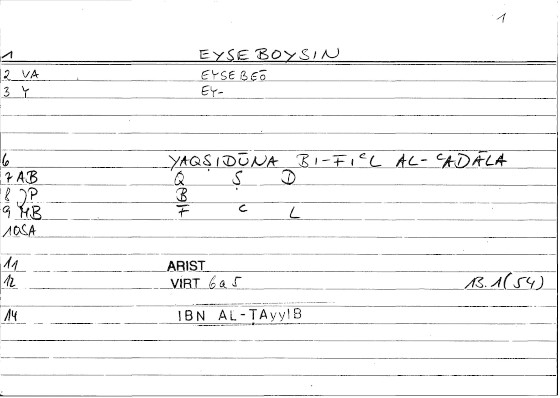 1
1 EYSEBOYSIN
2 VA EYSEBEŌ
3 Y EY-
6 YAQṢIDŪNA BI-FIᶜL AL-ᶜADĀLA
7 AB Q Ṣ D
8 )P B
9 MB F ᶜ L
10SA
11 ARIST
12 VIRT 6a5 13.1(54)
14 IBN AL-ṬAyyIB